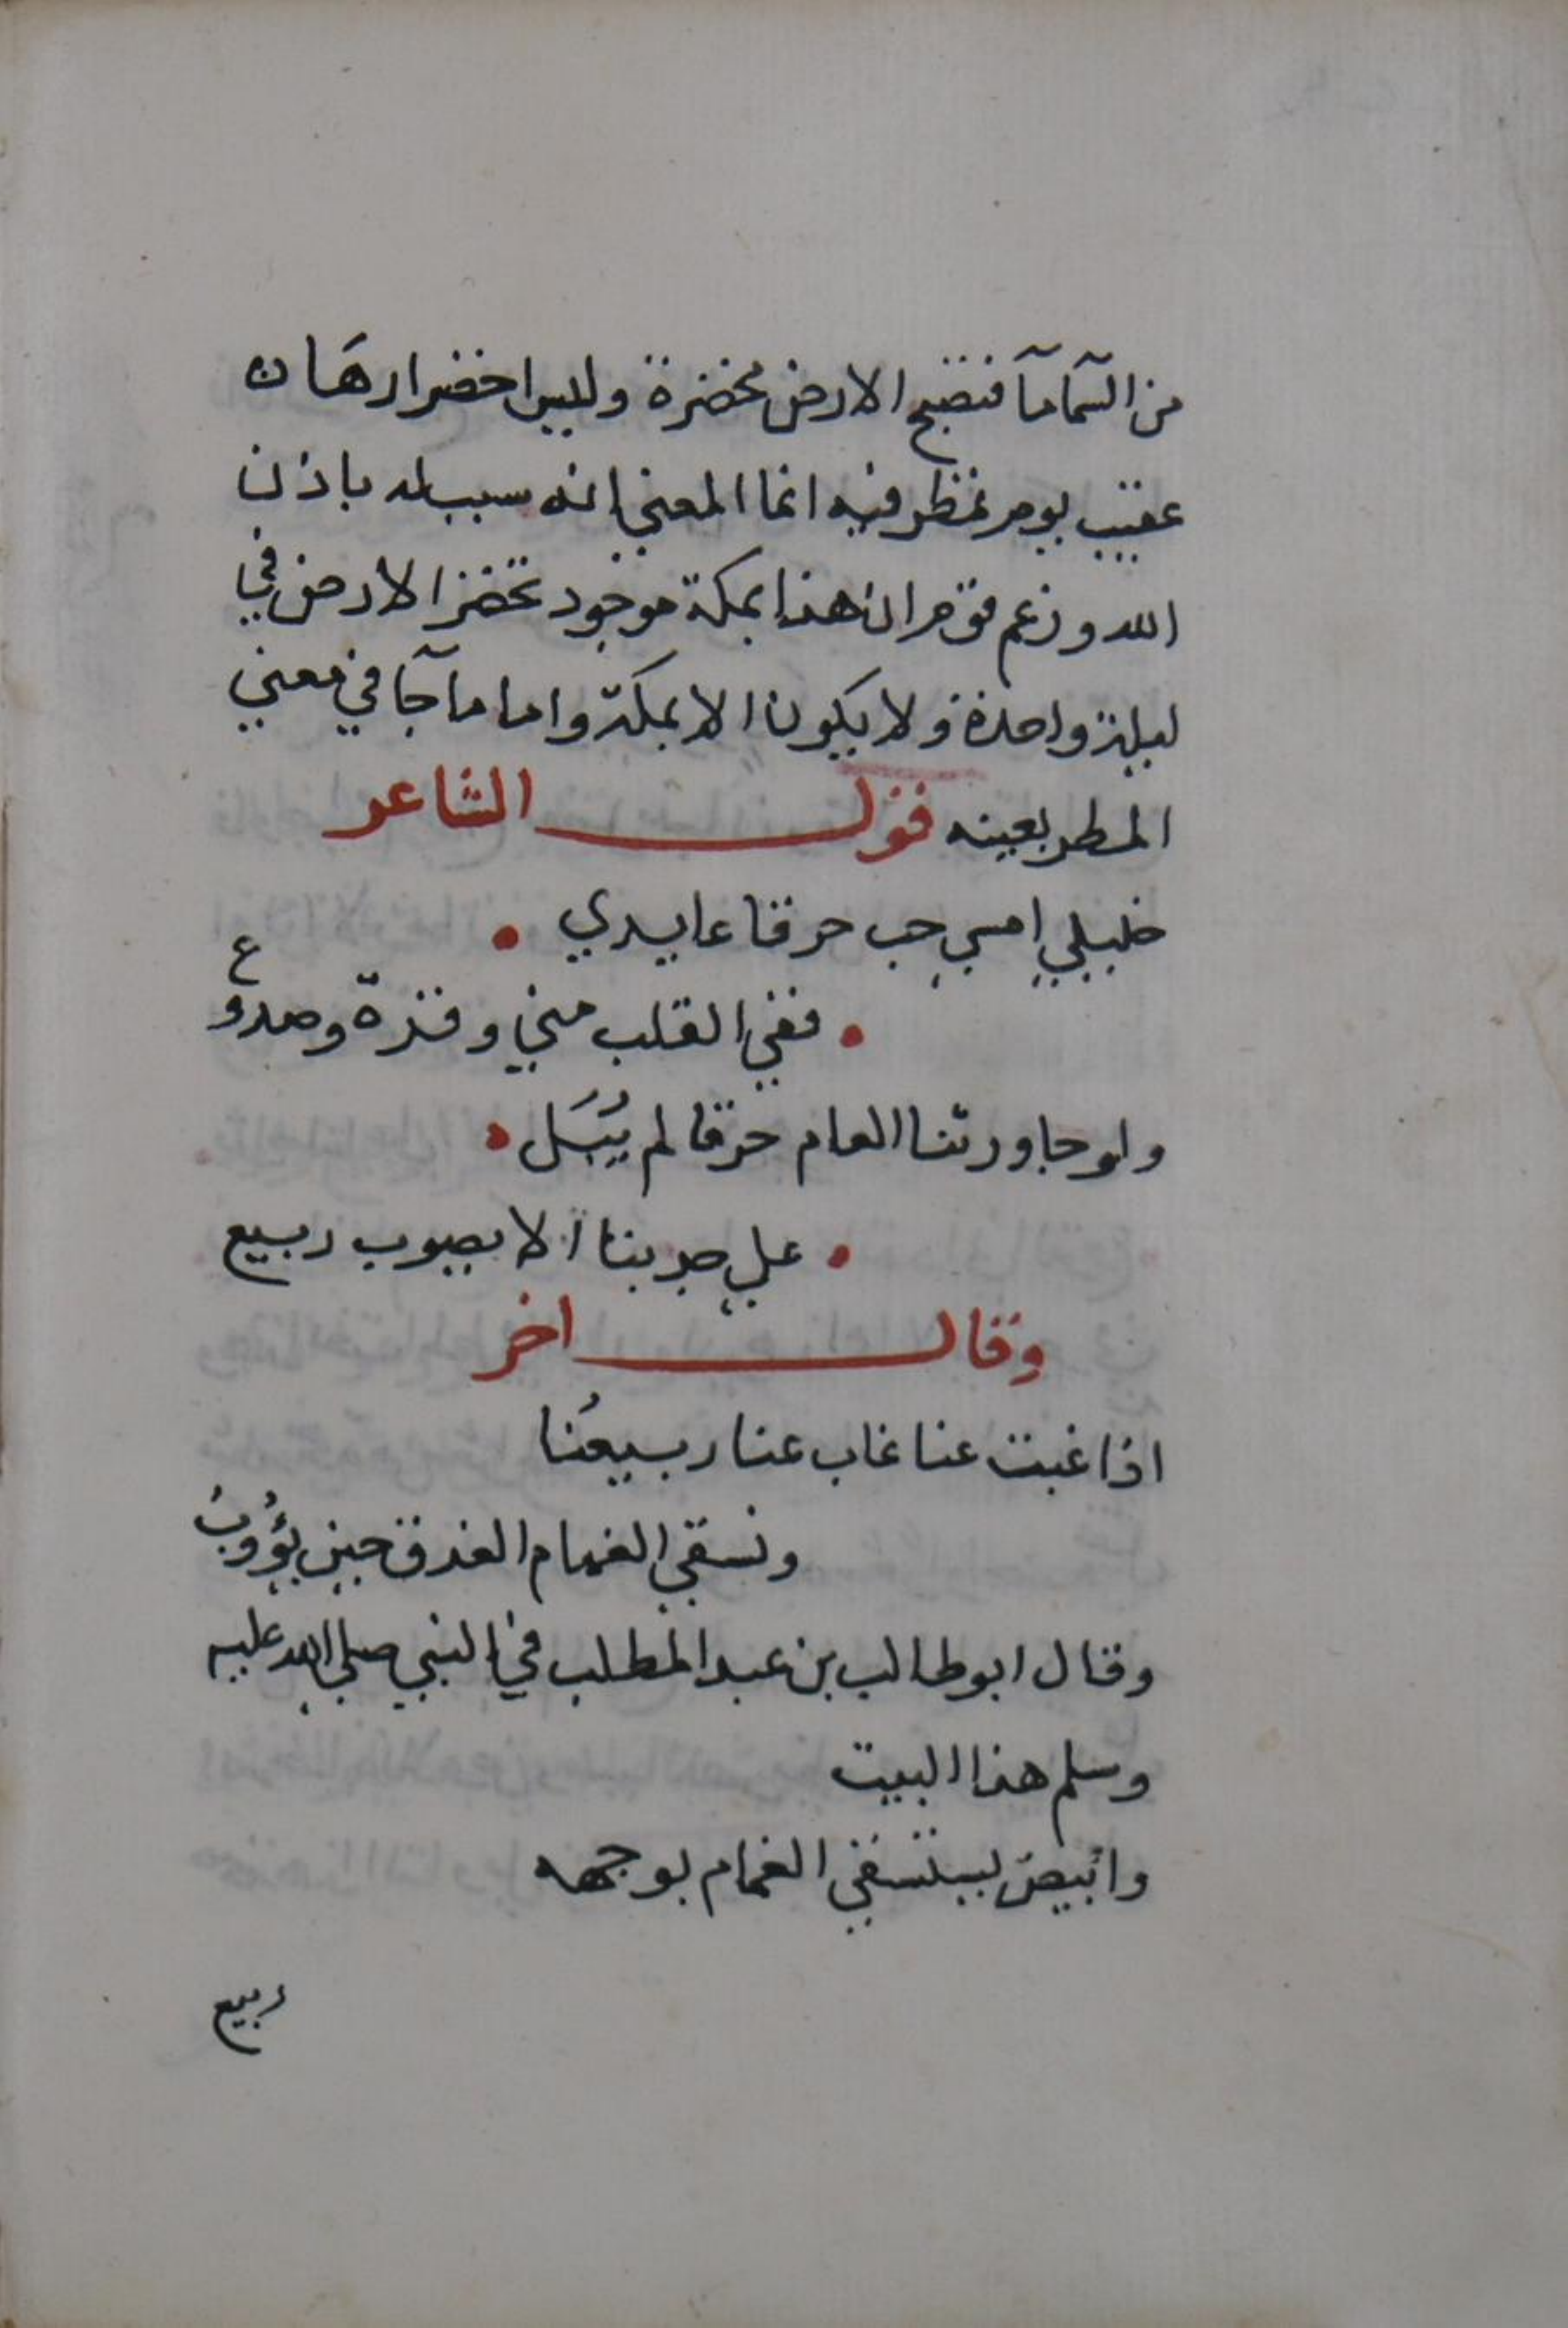 من السّمآ مآ فتصبح الارض مخضرة وليس اخضرارها ن
عقيب يوم تمطر فيه انما المعني انه سبب له باذن
الله وزعم قوم ان هذا بمكة موجود تخضر الارض في
ليلة واحدة ولا يكون الا بمكة واما ما جآ في معني
المطر بعينه فقول الشاعر
خليلي امسي حب خرقا عايدي •
• ففي القلب مني وقرة وصدوع
ولو جاورتنا العام خرقا لم يُبَل •
• علي جدبنا الا بصوب ربيع
وقال اخر
اذا غبت عنا غاب عنا ربيعُنا
ونسقي الغمام الغدق حين يؤُوبُ
وقال ابو طالب بن عبد المطلب في النبي صلي الله عليه
وسلم هذا البيت
وابيض يستسقي الغمام بوجهه
ربيع